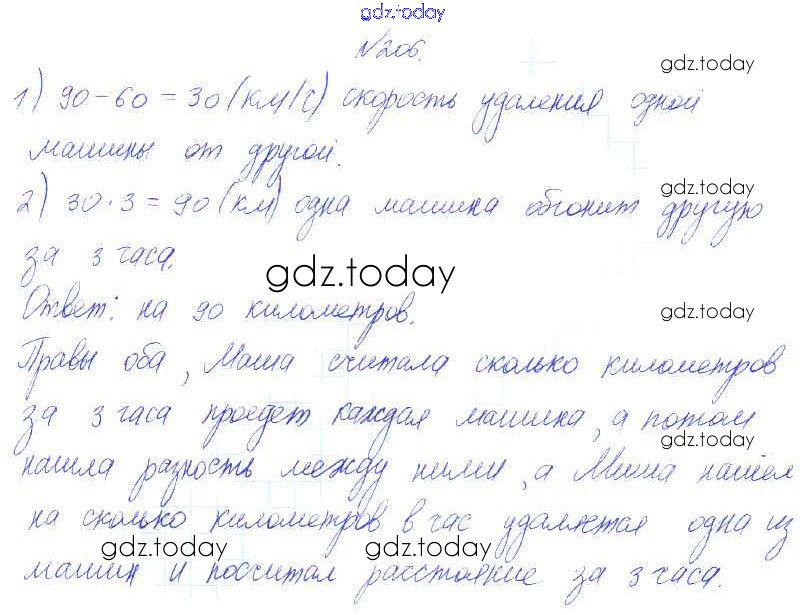 gdz.today
№206.
gdz.today
1) 90-60=30(км/ч) скорость удаления одной
машины от другой.
gdz.today
2) 30·3=90(км) одна машина обгонит другую
за 3 часа.
gdz.today
Ответ: на 90 километров.
gdz.today
Правы оба, Маша считала сколько километров
за 3 часа проедет каждая машина, а потом
gdz.today
нашла разность между ними, а Миша нашёл
на сколько километров в час удаляется одна из
gdz.today gdz.today
машин и посчитал расстояние за 3 часа.